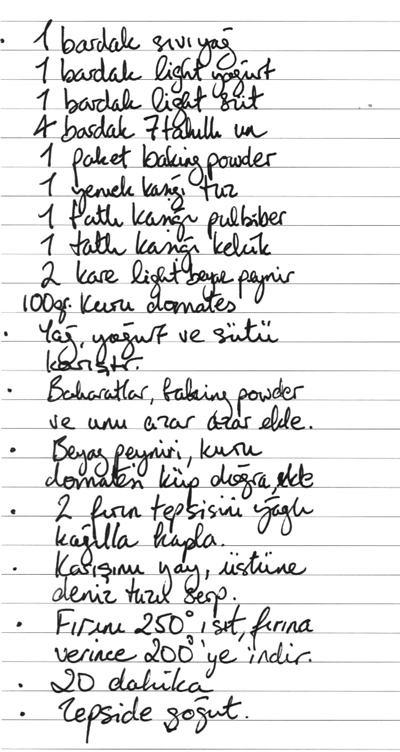 · 1 bardak sıvı yağ
1 bardak light yoğurt
1 bardak light süt
4 bardak 7 tahıllı un
1 paket baking powder
1 yemek kaşığı tuz
1 tatlı kaşığı pulbiber
1 tatlı kaşığı kekik
2 kare light beyaz peynir
100gr. kuru domates
· Yağ, yoğurt ve sütü
karıştır.
· Baharatlar, baking powder
ve unu azar azar ekle.
· Beyaz peyniri, kuru
domatesi küp doğra, ekle
· 2 fırın tepsisini yağlı
kağıtla kapla.
· Karışımı yay, üstüne
deniz tuzu serp.
· Fırını 250° ısıt, fırına
verince 200°'ye indir.
· 20 dakika
· Tepside soğut.